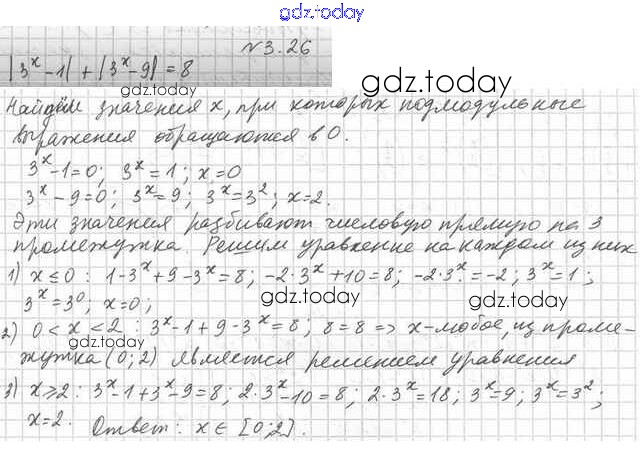 gdz.today
№3.26
|3ˣ-1|+|3ˣ-9|=8
gdz.today
Найдём значения x, при которых подмодульные
выражения обращаются в 0.
3ˣ-1=0; 3ˣ=1; x=0
3ˣ-9=0; 3ˣ=9; 3ˣ=3²; x=2.
gdz.today
Эти значения разбивают числовую прямую на 3
промежутка. Решим уравнение на каждом из них
1) x≤0: 1-3ˣ+9-3ˣ=8; -2·3ˣ+10=8; -2·3ˣ=-2; 3ˣ=1;
3ˣ=3⁰; x=0;
gdz.today
gdz.today
2) 0<x<2: 3ˣ-1+9-3ˣ=8; 8=8 => x-любое, из проме-
жутка (0;2) является решением уравнения
3) x≥2: 3ˣ-1+3ˣ-9=8; 2·3ˣ-10=8; 2·3ˣ=18; 3ˣ=9; 3ˣ=3²;
x=2.
Ответ: x∈[0;2].
gdz.today